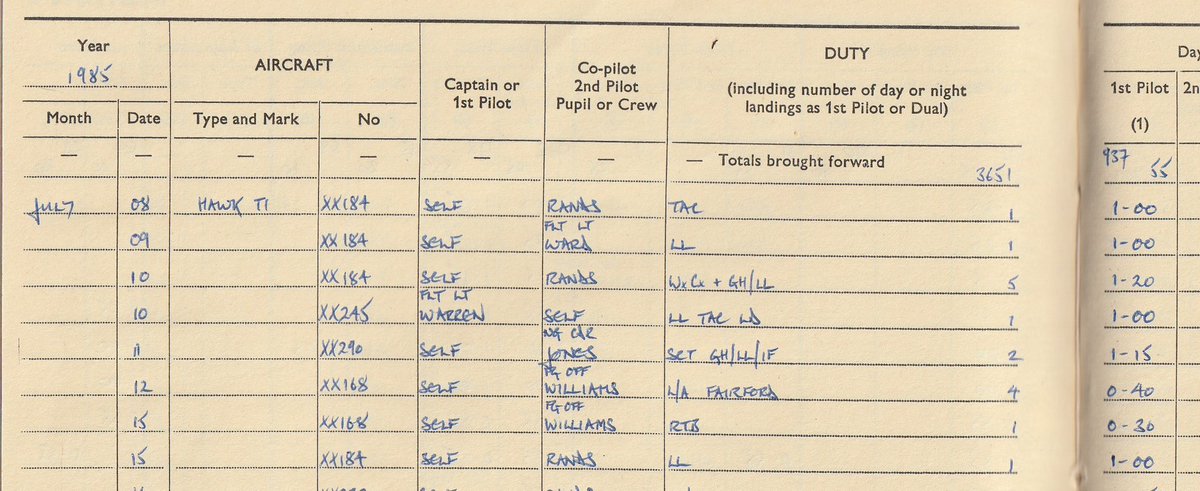 Year
1985
AIRCRAFT
Captain or
1st Pilot
Co-pilot
2nd Pilot
Pupil or Crew
DUTY
(including number of day or night
landings as 1st Pilot or Dual)
Day
1st Pilot
2n
(1)
Month Date Type and Mark No
— — — — — — — Totals brought forward 3651 937 55
JULY 08 HAWK T1 XX184 SELF RANDS TAC 1 1-00
FLT LT
09 XX184 SELF WARD LL 1 1-00
10 XX184 SELF RANDS WxCx + GH/LL 5 1-20
FLT LT
10 XX245 WARREN SELF LL TAC LD 1 1-00
WG CDR
11 XX290 SELF JONES SCT GH/LL/IF 2 1-15
FG OFF
12 XX168 SELF WILLIAMS L/A FAIRFORD 4 0-40
FG OFF
15 XX168 SELF WILLIAMS RTB 1 0-30
15 XX184 SELF RANDS LL 1 1-00